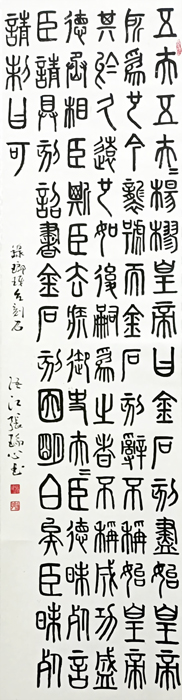 五大五大=楊樛皇帝曰金石刻盡始皇帝
所為也今襲號而金石刻辭不稱始皇帝
其於久遠也如後嗣為之者不稱成功盛
德丞相臣斯臣去疾御史大=臣德昧死言
臣請具刻詔書金石刻因明白矣臣昧死
請制曰可
錄瑯琊台刻石
江張心書